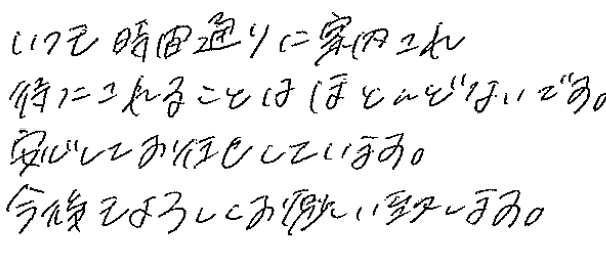 いつも時間通りに案内され
待たされることはほとんどないです。
安心してお任せしています。
今後もよろしくお願い致します。